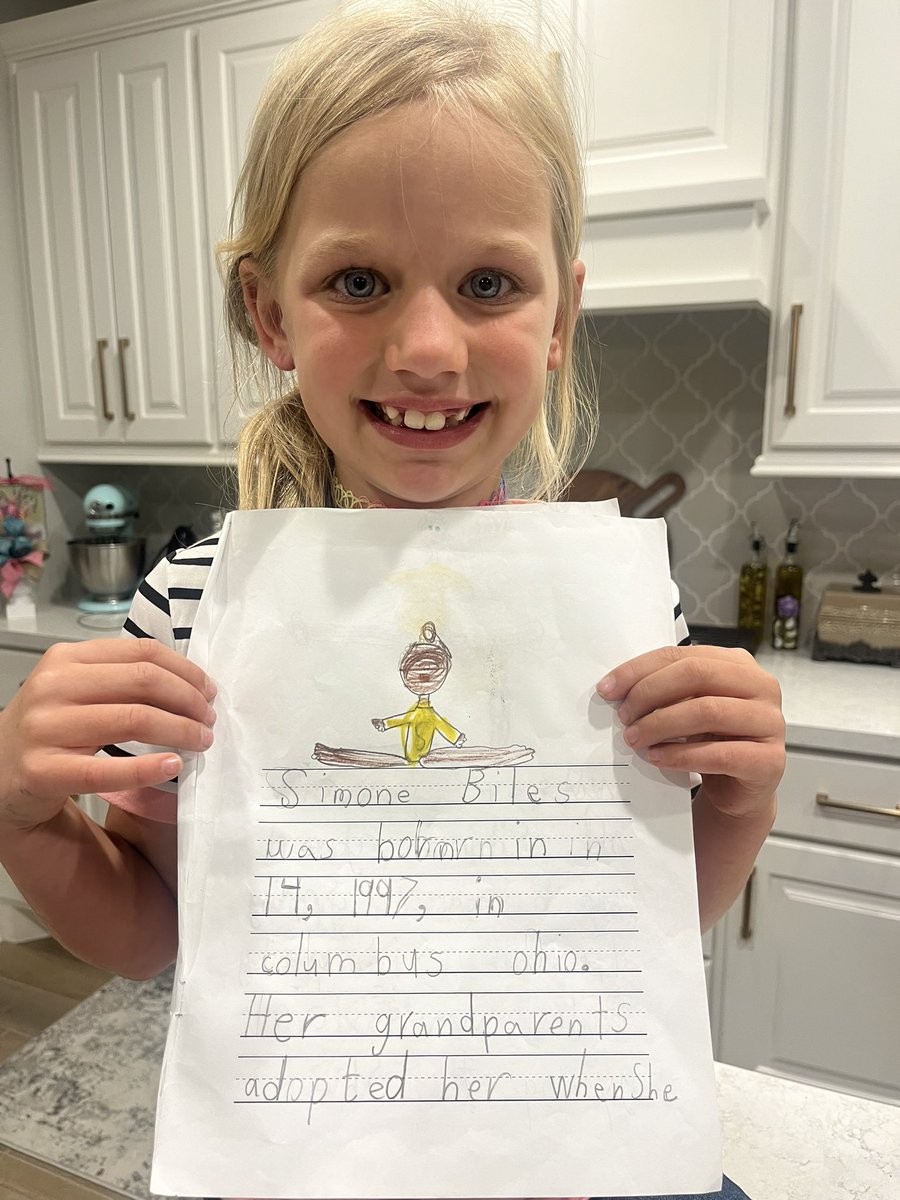 Simone Biles
was born in in
14, 1997, in
columbus ohio.
Her grandparents
adopted her when She